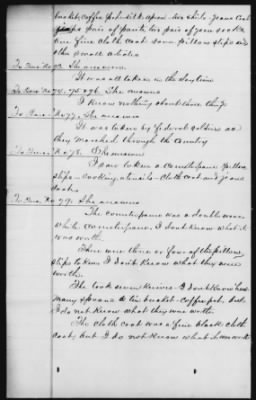 bucket, Coffee pot - silk apron - One white - Jeans Coat
pair of pants, two pair of jeans sacks
one fine cloth coat some pillow slips and
other small articles
To Int. No 73. She answers
It was all taken in the daytime
To Int. No 74, 75 & 76. She answers
I know nothing about these things
To Int. No 77. She answers
It was taken by Federal soldiers as
they marched through the Country
To Int. No 78. She answers
I saw taken a Counterpane - pillow
slips - cooking utensils - cloth coat and jeans
sacks
To Int. No 79. She answers
The counterpane was a double wove
white Counterpane. I dont know what it
was worth.
There were three or four of the pillow
slips taken I don't know what they were
worth.
The took seven knives - I don't know how
many spoons & tin bucket - Coffee pot. But
I do not know what they were worth
The cloth coat was a fine black cloth
coat, but I do not know what it was worth